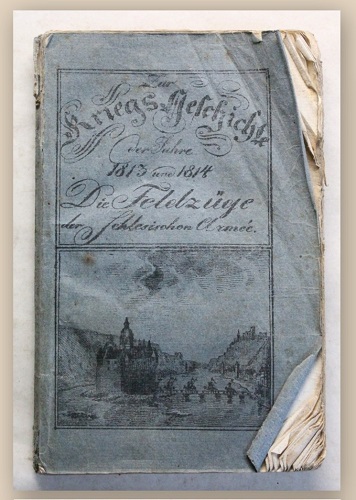 Zur
Kriegs Geschichte
der Jahre
1813 und 1814
Die Feldzüge
der Schlesischen Armée.